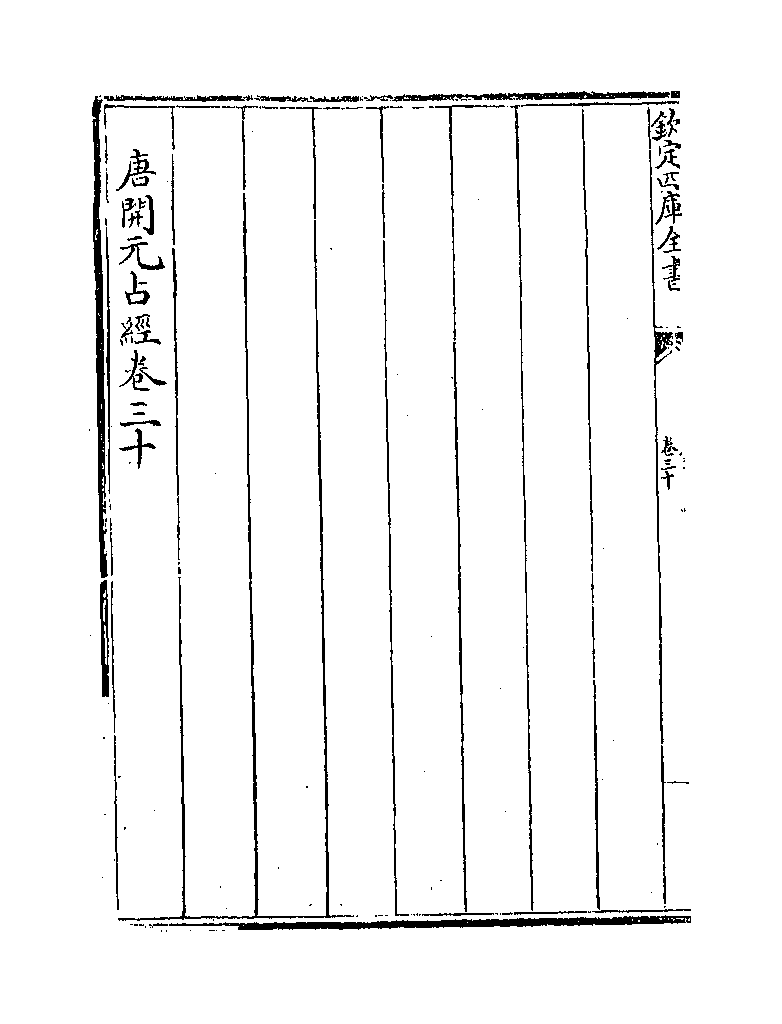 欽定四庫全書
卷三十
唐開元占經卷三十